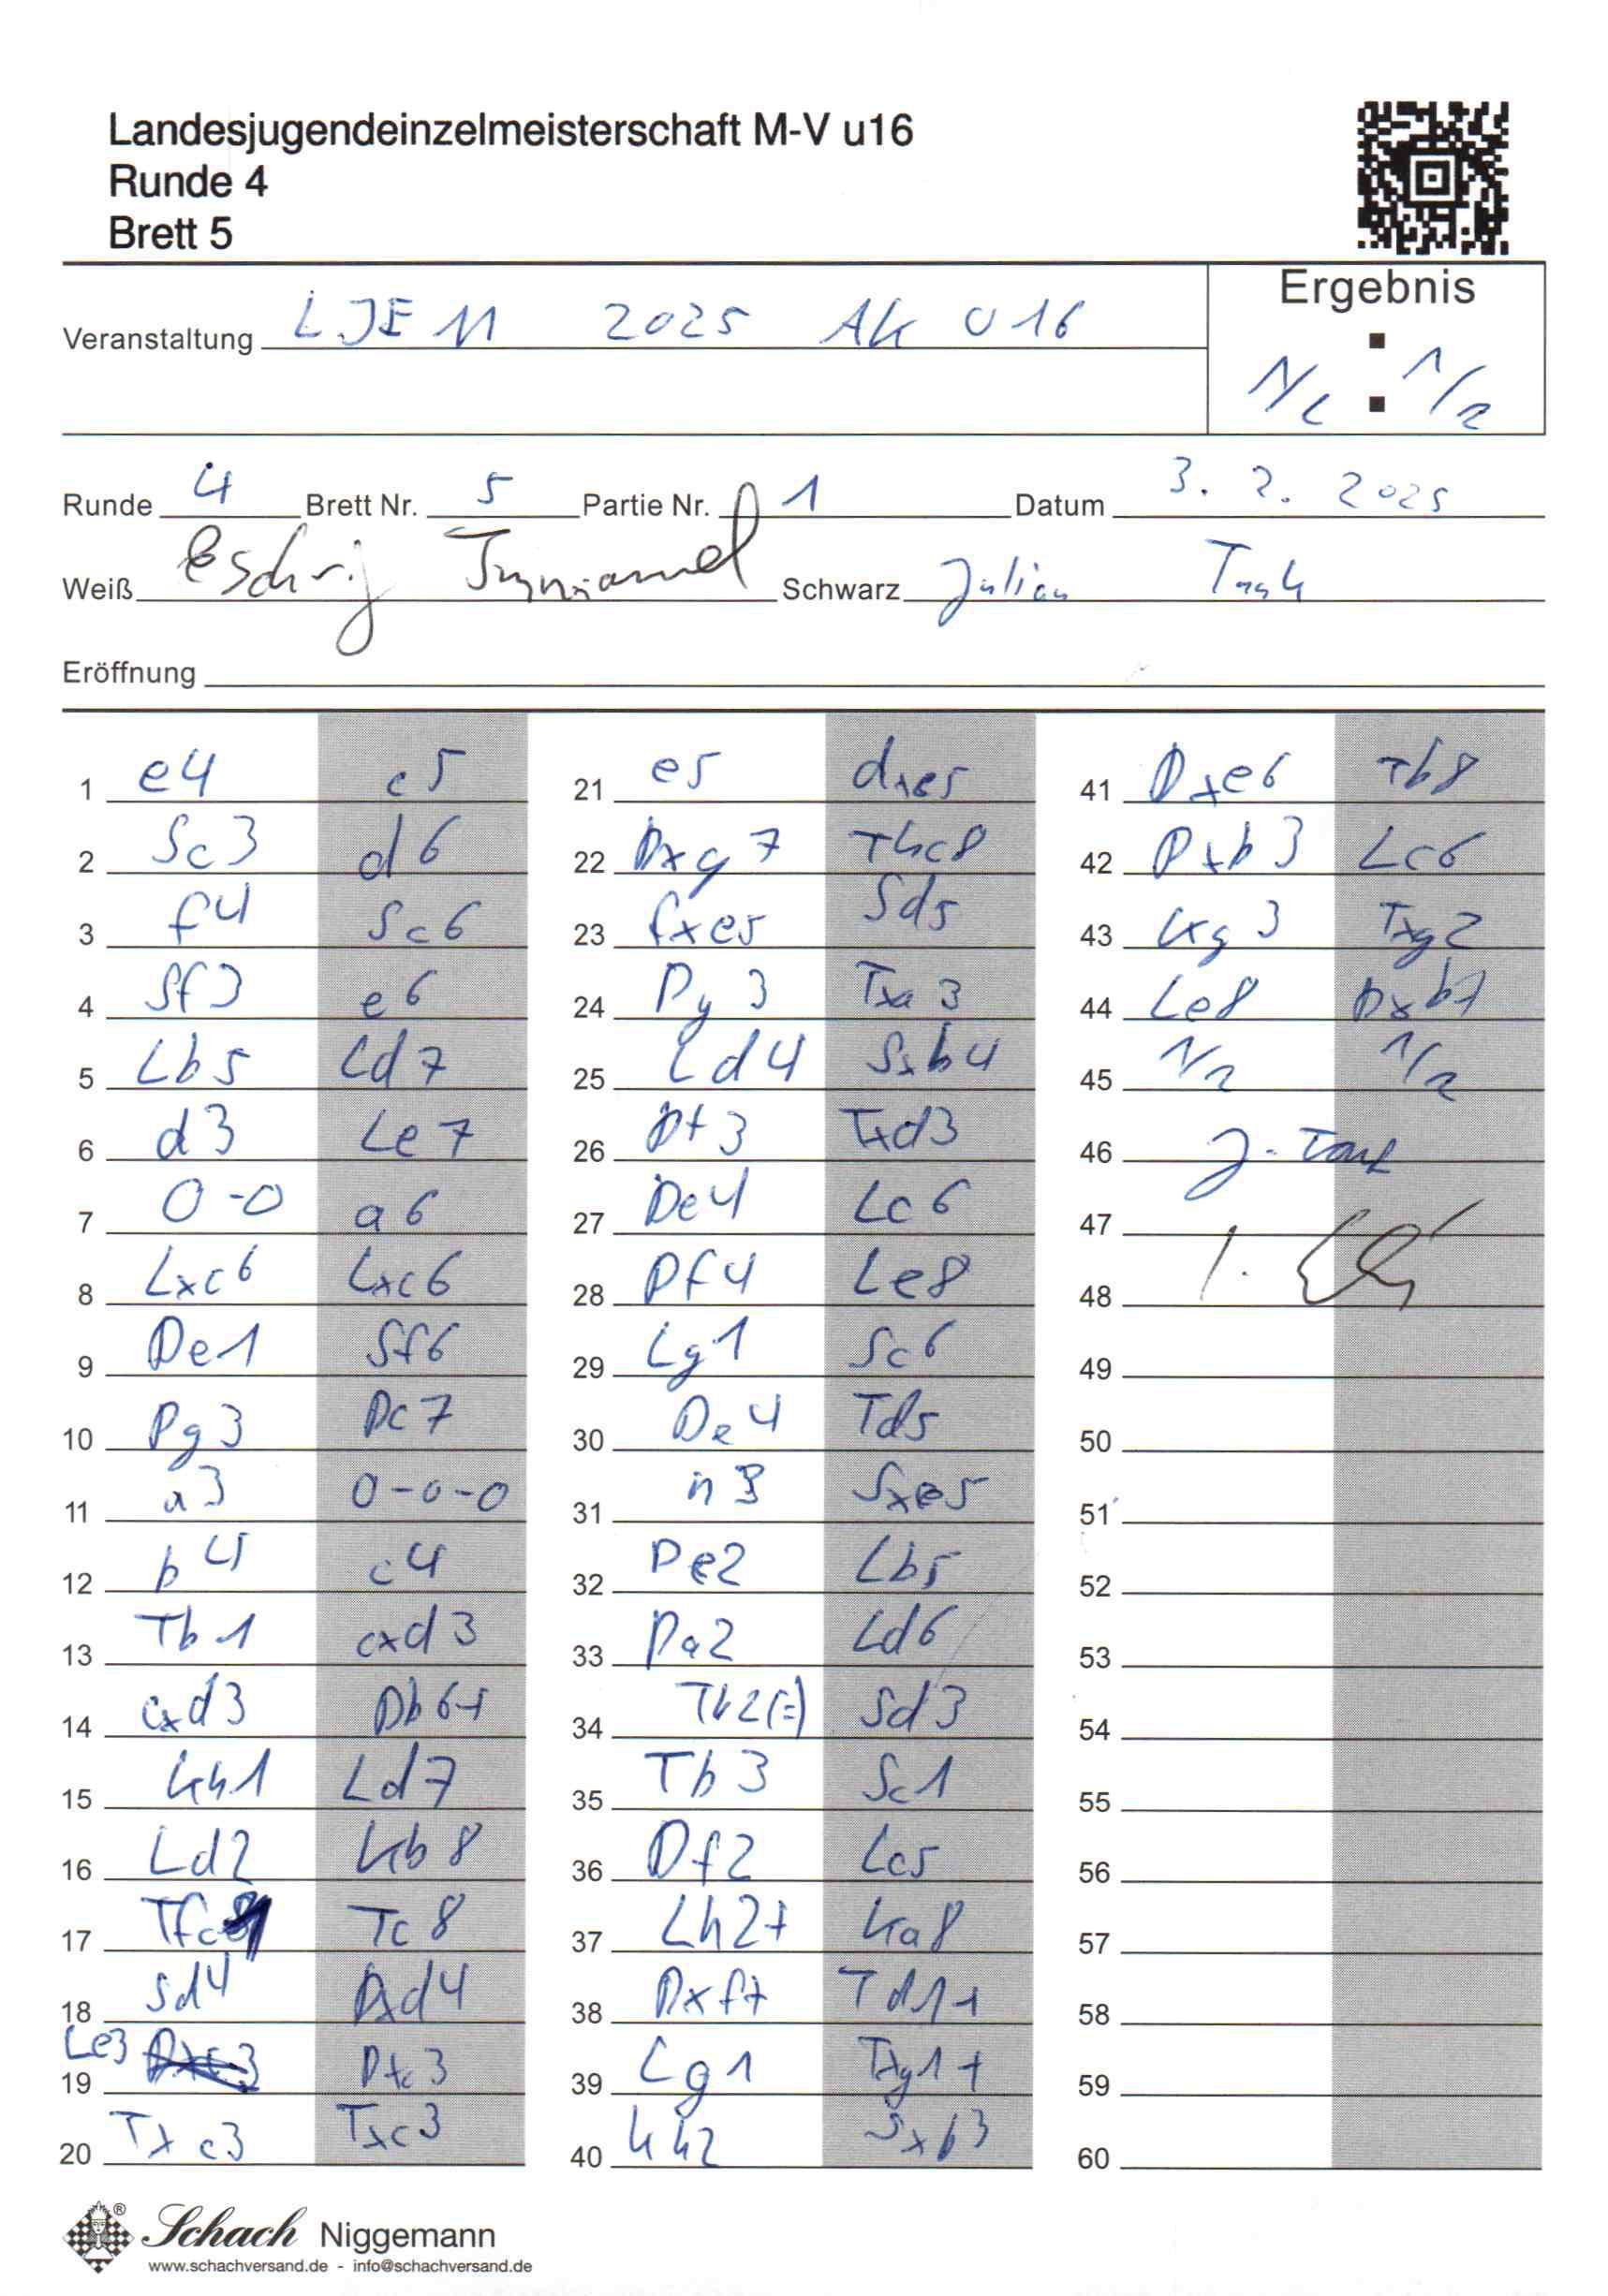 Landesjugendeinzelmeisterschaft M-V u16
Runde 4
Brett 5
Ergebnis
Veranstaltung LJEM 2025 AK U16
1/2 : 1/2
Runde 4 Brett Nr. 5 Partie Nr. 1 Datum 3. 2. 2025
Weiß Eschrig Schwarz Julian
Eröffnung
1 e4 c5
2 Sc3 d6
3 f4 Sc6
4 Sf3 e6
5 Lb5 Ld7
6 d3 Le7
7 0-0 a6
8 Lxc6 Lxc6
9 De1 Sf6
10 Dg3 Dc7
11 a3 0-0-0
12 b4 c4
13 Tb1 cxd3
14 cxd3 Db6+
15 Kh1 Ld7
16 Ld2 Kb8
17 Tfc1 Tc8
18 Sd4 Dxd4
19 Le3 Dxc3
20 Txc3 Txc3
21 e5 dxe5
22 Dxg7 Thc8
23 fxe5 Sd5
24 Dg3 Txa3
25 Ld4 Sxb4
26 Df3 Txd3
27 De4 Lc6
28 Df4 Le8
29 Lg1 Sc6
30 De4 Td5
31 h3 Sxe5
32 De2 Lb5
33 Da2 Ld6
34 Tb2(=) Sd3
35 Tb3 Sc1
36 Df2 Lc5
37 Lh2+ Ka8
38 Dxf7 Td1+
39 Lg1 Txg1+
40 Kh2 Sxb3
41 Dxe6 Tb8
42 Dxb3 Lc6
43 Kg3 Txg2
44 Le8 Dxb7
45 1/2 1/2
46 J. Tank
47
48
49
50
51
52
53
54
55
56
57
58
59
60
Schach Niggemann
www.schachversand.de - info@schachversand.de